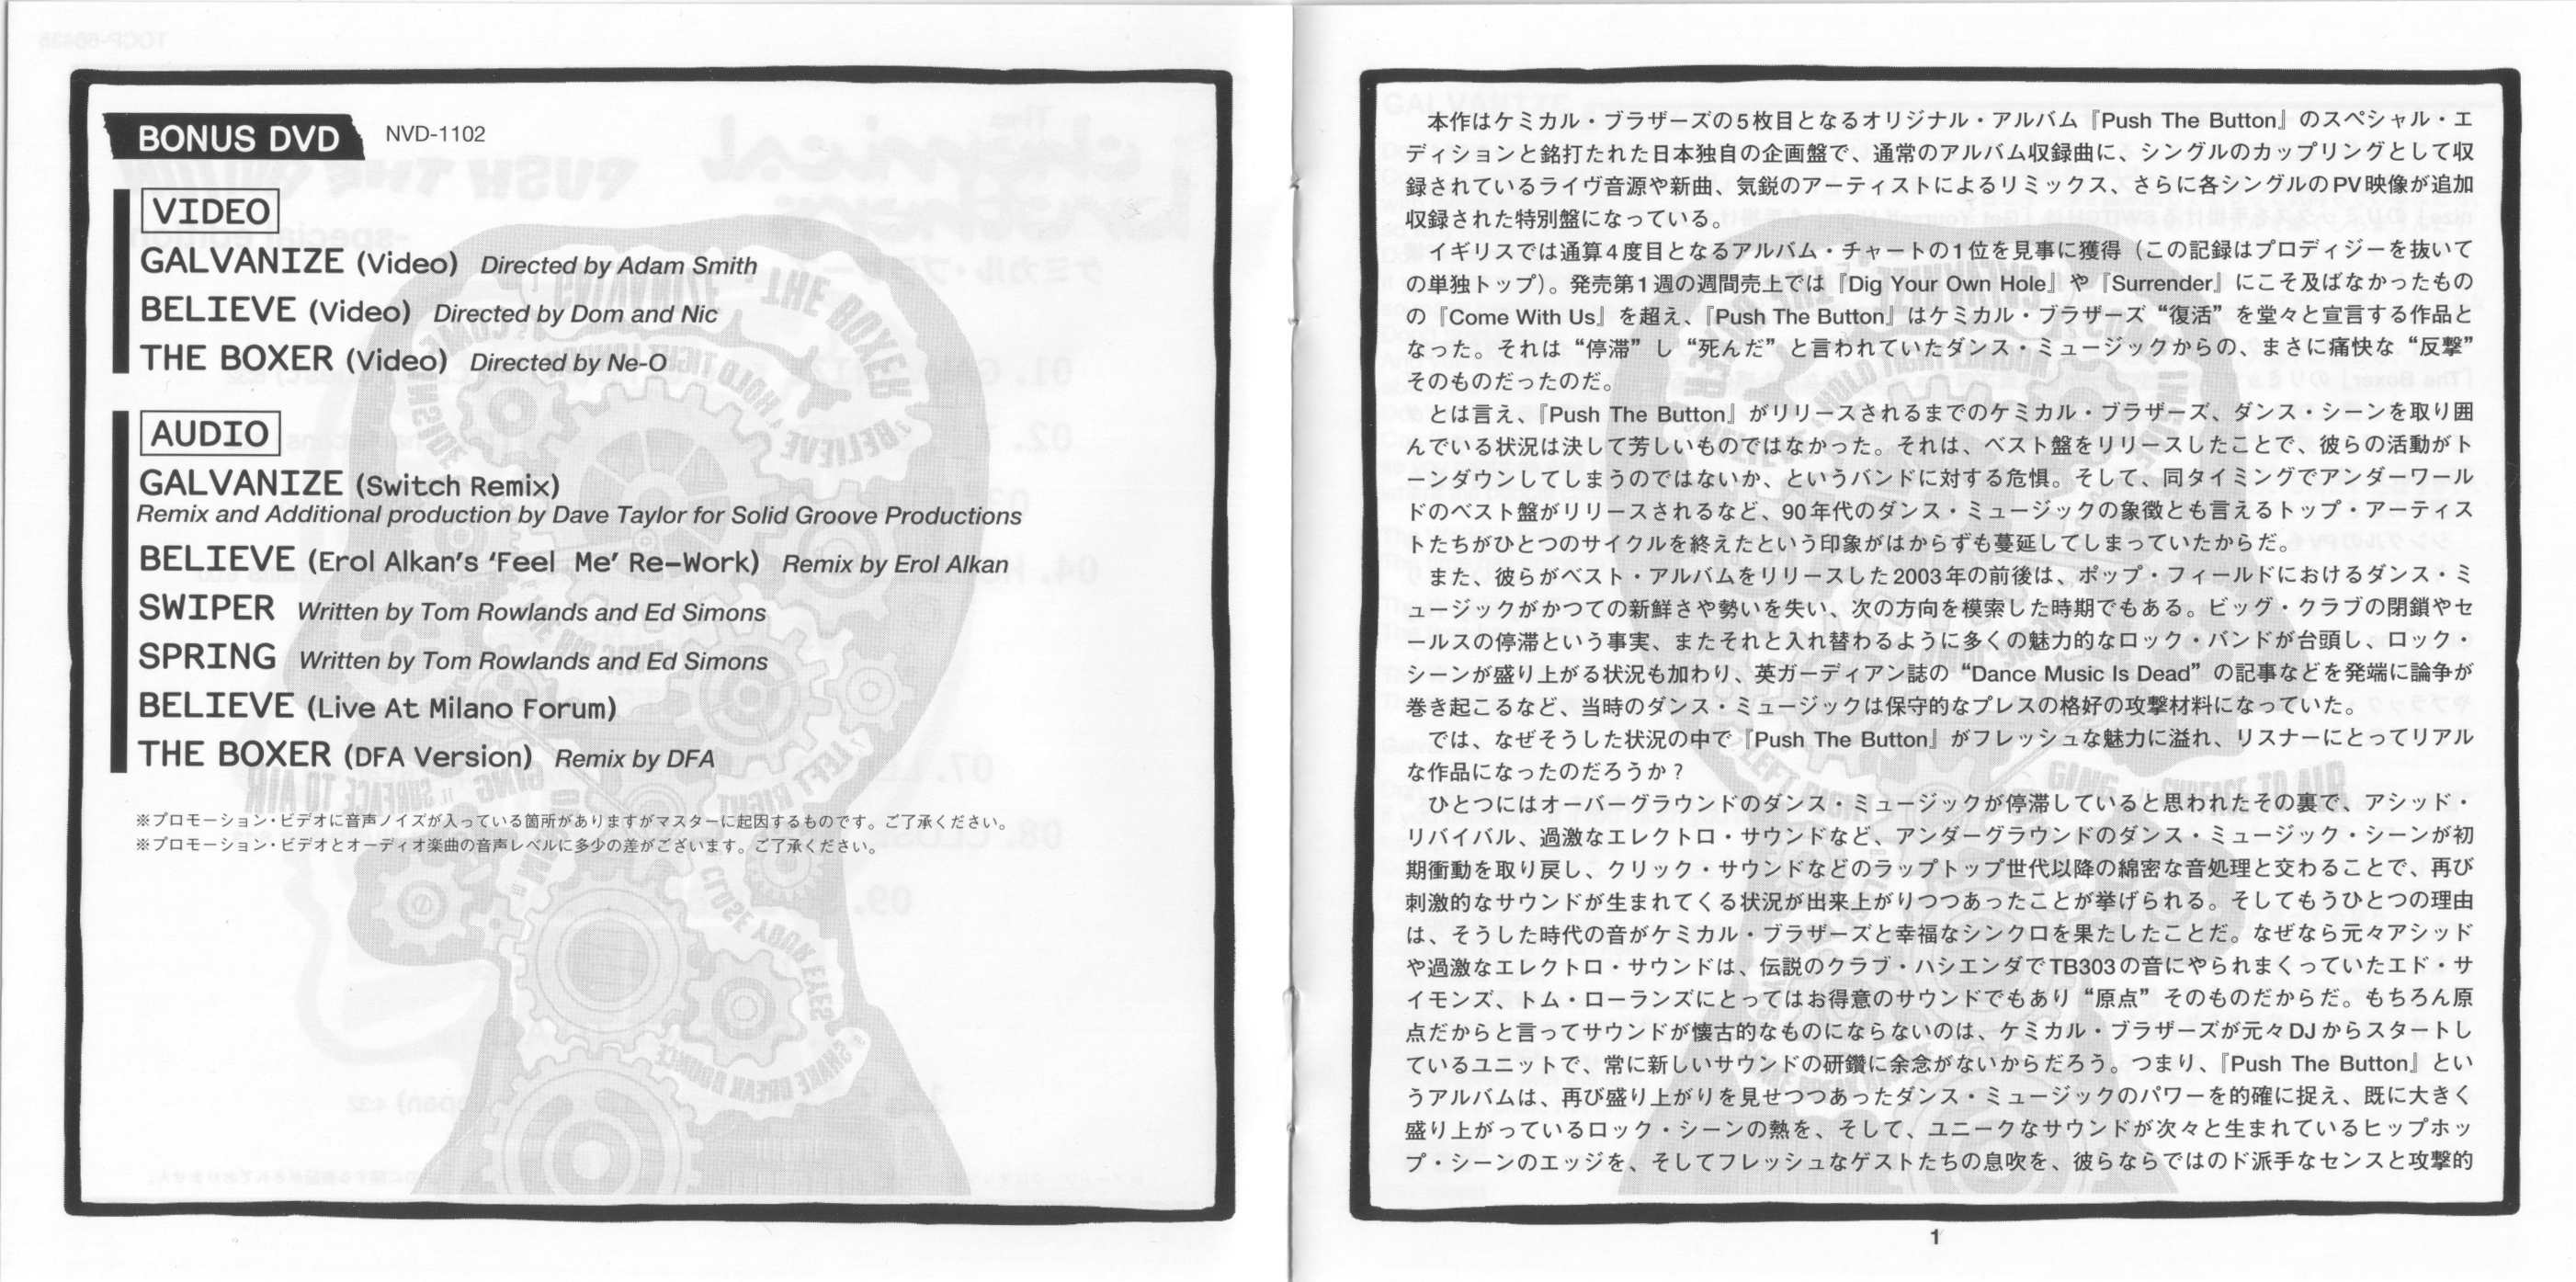 BONUS DVD NVD-1102
VIDEO
GALVANIZE (Video) Directed by Adam Smith
BELIEVE (Video) Directed by Dom and Nic
THE BOXER (Video) Directed by Ne-O
AUDIO
GALVANIZE (Switch Remix)
Remix and Additional production by Dave Taylor for Solid Groove Productions
BELIEVE (Erol Alkan's 'Feel Me' Re-Work) Remix by Erol Alkan
SWIPER Written by Tom Rowlands and Ed Simons
SPRING Written by Tom Rowlands and Ed Simons
BELIEVE (Live At Milano Forum)
THE BOXER (DFA Version) Remix by DFA
※プロモーション・ビデオに音声ノイズが入っている箇所がありますがマスターに起因するものです。ご了承ください。
※プロモーション・ビデオとオーディオ楽曲の音声レベルに多少の差がございます。ご了承ください。
本作はケミカル・ブラザーズの5枚目となるオリジナル・アルバム『Push The Button』のスペシャル・エ
ディションと銘打たれた日本独自の企画盤で、通常のアルバム収録曲に、シングルのカップリングとして収
録されているライヴ音源や新曲、気鋭のアーティストによるリミックス、さらに各シングルのPV映像が追加
収録された特別盤になっている。
イギリスでは通算4度目となるアルバム・チャートの1位を見事に獲得（この記録はプロディジーを抜いて
の単独トップ）。発売第1週の週間売上では『Dig Your Own Hole』や『Surrender』にこそ及ばなかったもの
の『Come With Us』を超え、『Push The Button』はケミカル・ブラザーズ“復活”を堂々と宣言する作品と
なった。それは“停滞”し“死んだ”と言われていたダンス・ミュージックからの、まさに痛快な“反撃”
そのものだったのだ。
とは言え、『Push The Button』がリリースされるまでのケミカル・ブラザーズ、ダンス・シーンを取り囲
んでいる状況は決して芳しいものではなかった。それは、ベスト盤をリリースしたことで、彼らの活動がト
ーンダウンしてしまうのではないか、というバンドに対する危惧。そして、同タイミングでアンダーワール
ドのベスト盤がリリースされるなど、90年代のダンス・ミュージックの象徴とも言えるトップ・アーティス
トたちがひとつのサイクルを終えたという印象がはからずも蔓延してしまっていたからだ。
また、彼らがベスト・アルバムをリリースした2003年の前後は、ポップ・フィールドにおけるダンス・ミ
ュージックがかつての新鮮さや勢いを失い、次の方向を模索した時期でもある。ビッグ・クラブの閉鎖やセ
ールスの停滞という事実、またそれと入れ替わるように多くの魅力的なロック・バンドが台頭し、ロック・
シーンが盛り上がる状況も加わり、英ガーディアン誌の“Dance Music Is Dead”の記事などを発端に論争が
巻き起こるなど、当時のダンス・ミュージックは保守的なプレスの格好の攻撃材料になっていた。
では、なぜそうした状況の中で『Push The Button』がフレッシュな魅力に溢れ、リスナーにとってリアル
な作品になったのだろうか？
ひとつにはオーバーグラウンドのダンス・ミュージックが停滞していると思われたその裏で、アシッド・
リバイバル、過激なエレクトロ・サウンドなど、アンダーグラウンドのダンス・ミュージック・シーンが初
期衝動を取り戻し、クリック・サウンドなどのラップトップ世代以降の綿密な音処理と交わることで、再び
刺激的なサウンドが生まれてくる状況が出来上がりつつあったことが挙げられる。そしてもうひとつの理由
は、そうした時代の音がケミカル・ブラザーズと幸福なシンクロを果たしたことだ。なぜなら元々アシッド
や過激なエレクトロ・サウンドは、伝説のクラブ・ハシエンダでTB303の音にやられまくっていたエド・サ
イモンズ、トム・ローランズにとってはお得意のサウンドでもあり“原点”そのものだからだ。もちろん原
点だからと言ってサウンドが懐古的なものにならないのは、ケミカル・ブラザーズが元々DJからスタートし
ているユニットで、常に新しいサウンドの研鑽に余念がないからだろう。つまり、『Push The Button』とい
うアルバムは、再び盛り上がりを見せつつあったダンス・ミュージックのパワーを的確に捉え、既に大きく
盛り上がっているロック・シーンの熱を、そして、ユニークなサウンドが次々と生まれているヒップホッ
プ・シーンのエッジを、そしてフレッシュなゲストたちの息吹を、彼らならではのド派手なセンスと攻撃的
1